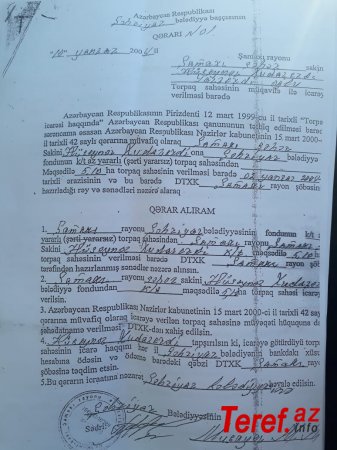 Azərbaycan Respublikası
Şəhriyar bələdiyyə başçısının
QƏRARI №01
"10" yanvar 2004 il
Şamaxı rayonu
Şamaxı şəhər sakin
Hüseynov Xudaverdi
Torpaq sahəsinin müqavilə ilə icarəyə
verilməsi barədə
Azərbaycan Respublikasının Pirizdenti 12 mart 1999-cu il tarixli "Torpaq
icarəsi haqqında" Azərbaycan Respublikası qanununun tətbiq edilməsi barədə
sərəncama əsasən Azərbaycan Respublikası Nazirlər kabinetinin 15 mart 2000-
ci il tarixli 42 saylı qərarına müvafiq olaraq Şamaxı şəhər
Sakini Hüseynov Xudaverdi ona Şəhriyar bələdiyyə
fondunun k/t az yararlı (şərti yararsız) torpaq sahəsindən
Məqsədilə 5,10 ha torpaq sahəsinin verilməsi barədə 02 yanvar 2004
tarixli ərizəsinin və bu barədə DTXK Şamaxı rayon şöbəsinin
hazırladığı rəy və sənədləri nəzərə alaraq
QƏRAR ALIRAM
1. Şamaxı rayonu Şəhriyar bələdiyyəsinin fondunun k/t
yararlı (şərti yararsız) torpaq sahəsindən Şamaxı rayonu Şamaxı
Sakini Hüseynov Xudaverdi k/t məqsədilə 5.10
ha torpaq sahəsinin verilməsi barədə DTXK Şamaxı rayon şöbəsi
tərəfindən hazırlanmış sənədlər nəzərə alınsın.
2. Şamaxı rayonu şəhər sakini Hüseynov Xudaverdi
bələdiyyə fondundan k/t məqsədilə 5,10 ha torpaq sahəsi icarəyə
verilsin.
3. Azərbaycan Respublikası Nazirlər kabinetinin 15 mart 2000-ci il tarixli 42
qərarına müvafiq olaraq icarəyə verilən torpaq sahəsinə müqavilə hüququna dair
şəhadətnamə verilməsi DTXK-dan xahiş edilsin.
4. Hüseynov Xudaverdi tapşırılsın ki, icarəyə götürdüyü torpaq
sahəsinin icarə haqqını hər il Şəhriyar bələdiyyəsinin bankdakı xüsusi
hesabına ödəsin və ödəmə barədəki qəbzi DTXK Şamaxı rayon
şöbəsinə təqdim etsin.
5. Bu qərarın icrasına nəzarət Şəhriyar bələdiyyə həvalə edilsin.
Şəhriyar Bələdiyyəsinin
Sədri
Teref.az
info